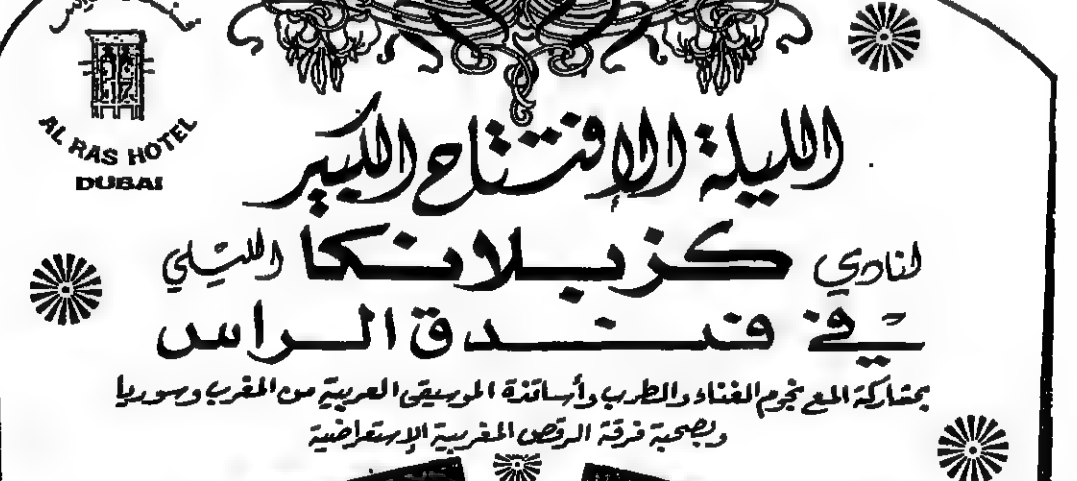 AL RAS HOTEL
DUBAI
الليلة الإفتتاح الكبير
لنادي كزبلانكا الليلي
في فندق الراس
بمشاركة المع نجوم الغناء والطرب وأساتذة الموسيقى العربية من المغرب وسوريا
وبصحبة فرقة الرقص المغربية الإستعراضية